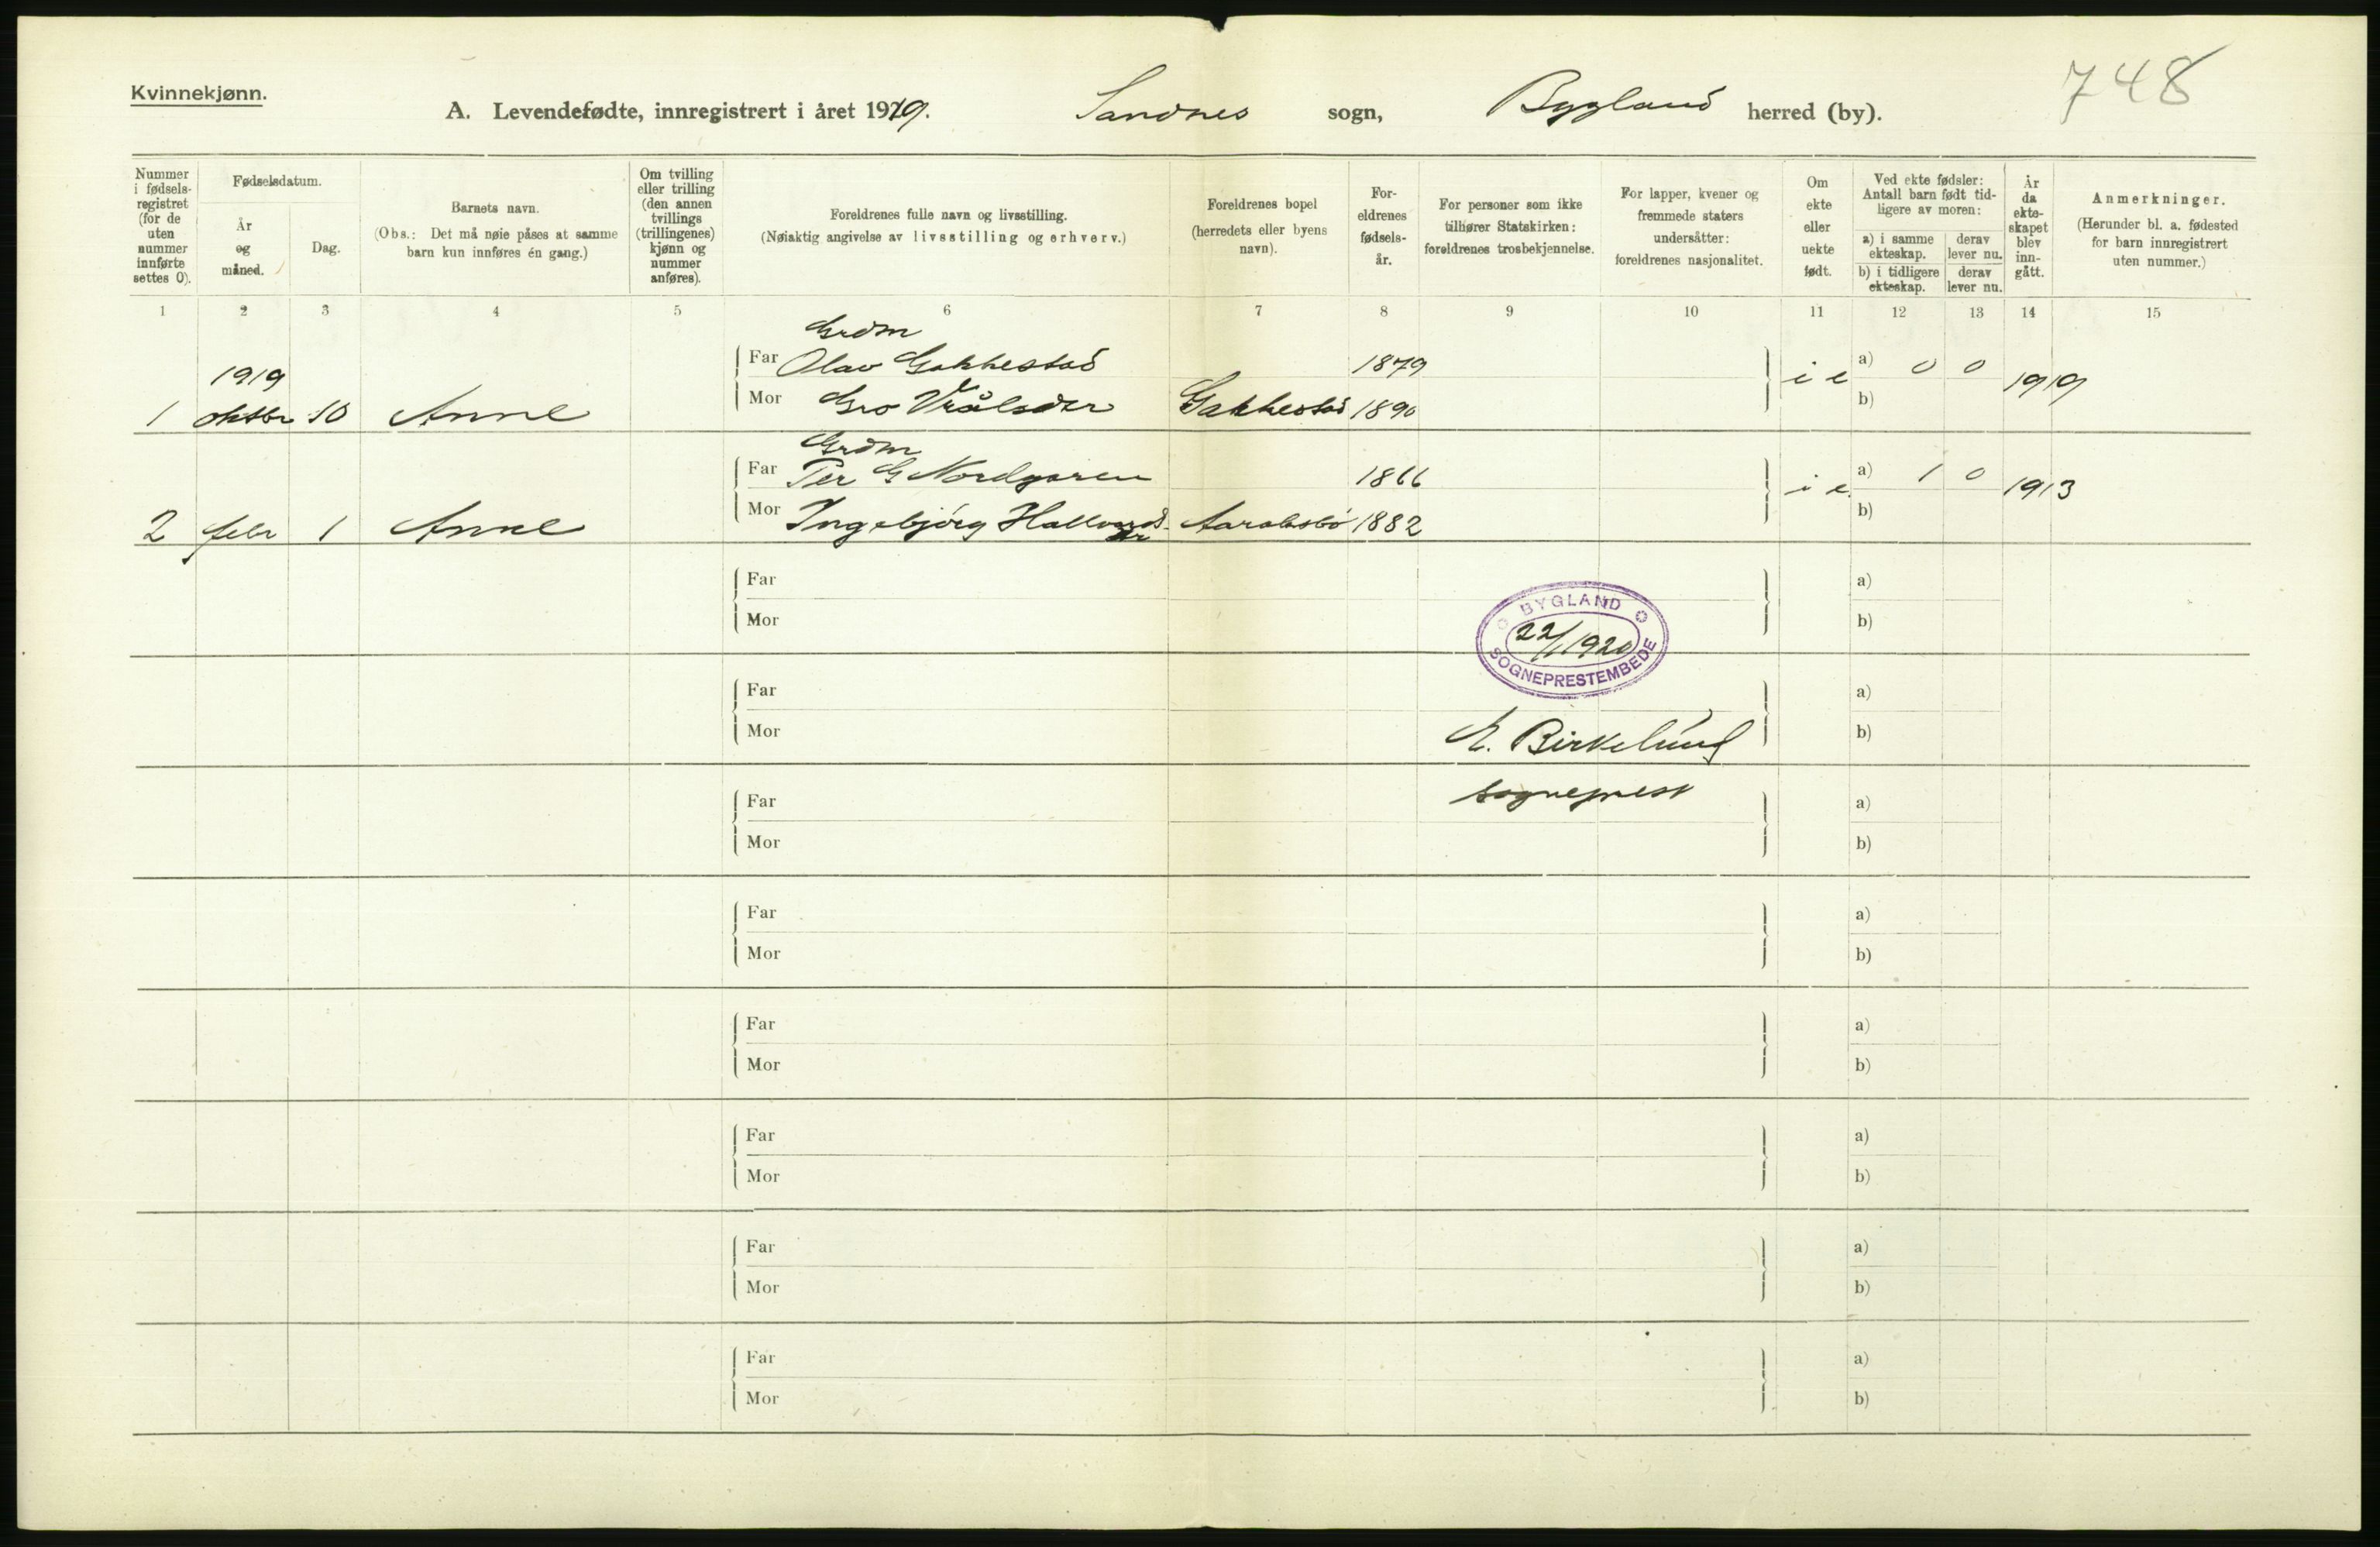 Kvinnekjønn.
A. Levendefødte, innregistrert i året 1919. Sandnes sogn, Bygland herred (by).
748
Nummer i fødsels-registret (for de uten nummer innførte settes 0).
Fødselsdatum.
År og måned.
Dag.
Barnets navn.
(Obs.: Det må nøie påses at samme barn kun innføres én gang.)
Om tvilling eller trilling (den annen tvillings (trillingenes) kjønn og nummer anføres).
Foreldrenes fulle navn og livsstilling.
(Nøiaktig angivelse av livsstilling og erhverv.)
Foreldrenes bopel (herredets eller byens navn).
For-eldrenes fødsels-år.
For personer som ikke tilhører Statskirken: foreldrenes trosbekjennelse.
For lapper, kvener og fremmede staters undersåtter: foreldrenes nasjonalitet.
Om ekte eller uekte født.
Ved ekte fødsler: Antall barn født tid-ligere av moren:
a) i samme ekteskap.
derav lever nu.
b) i tidligere ekteskap.
derav lever nu.
År da ekte-skapet blev inn-gått.
Anmerkninger.
(Herunder bl. a. fødested for barn innregistrert uten nummer.)
1 2 3 4 5 6 7 8 9 10 11 12 13 14 15
Grdm
1919 Far Olav Gakkestad 1879 i e a) 0 0 1919
1 oktbr 10 Anne Mor Gro Vrålsdtr Gakkestad 1890 b)
Grdm
Far Per G Nordgaren 1866 i e. a) 1 0 1913
2 febr 1 Anne Mor Ingebjörg Hallvards- Aaraksbö 1882 b)
Far a)
Mor b)
BYGLAND
22/1 1920
SOGNEPRESTEMBEDE
Far a)
Mor b)
Birkelund
sogneprest
Far a)
Mor b)
Far a)
Mor b)
Far a)
Mor b)
Far a)
Mor b)
Far a)
Mor b)
Far a)
Mor b)